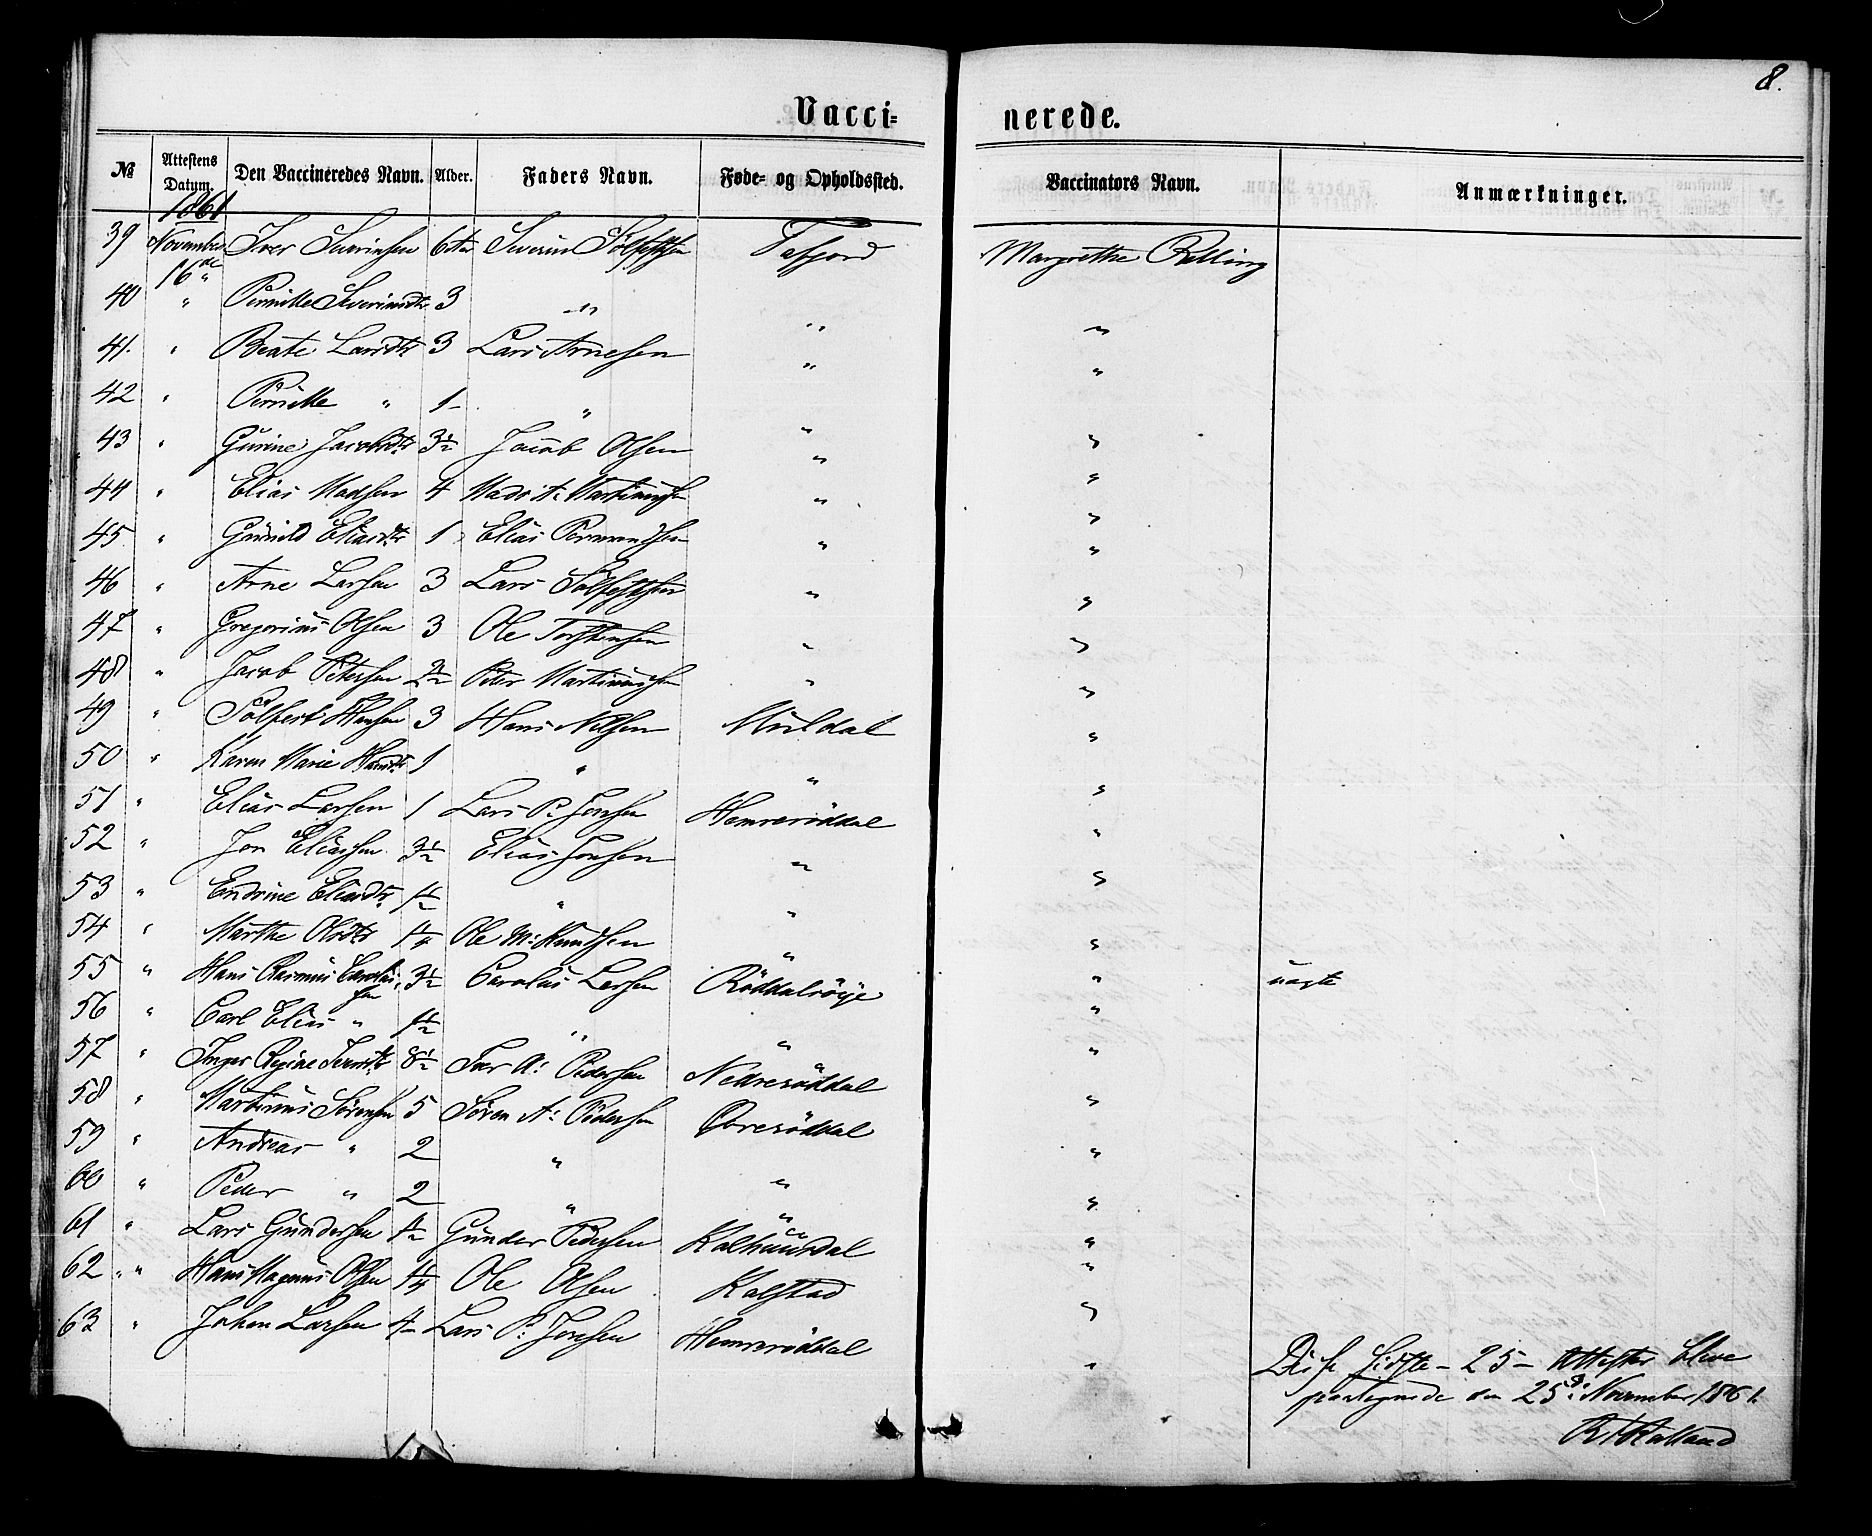 8.
Vacci= nerede.
№ Attestens Datum. Den Vaccineredes Navn. Alder. Faders Navn. Føde- og Opholdssted. Vaccinators Navn. Anmærkninger.
1861
39 November Iver Severinsen 6 Severin Sölfestsen Tafjord Margrethe Relling
16de
40 " Pernille Severinsdtr 3 " " "
41. " Beate Larsdtr 3 Lars Arnesen " "
42 " Pernille " 1 " " "
43 " Gurine Jacobsdtr 3½ Jacob Olsen " "
44 " Elias Madsen 4 Mads A: Martinussen " "
45 " Gunild Eliasdtr 1 Elias " "
46 " Arne Larsen 3 Lars Sölfestsen " "
47 " Gregorius Olsen 3 Ole Torstensen " "
48 " Jacob Petersen 2½ Peter Martinussen " "
49 " Sölfest Hansen 3 Hans Nilsen Muldal "
50 " Karen Marie Hansdtr 1 " " "
51 " Elias Larsen 1 Lars P. Jonsen Hemreröddal "
52 " Jon Eliassen 3½ Elias Jonsen " "
53 " Endrine Eliasdtr 1½ " " "
54 " Marthe Olsdtr 1¼ Ole M: Knudsen " "
55 " Hans Rasmus Carolus, 3½ Carolus Larsen Röddalsöye " uagte
sen
56 " Carl Elias " 1½ " " "
57 " Inger Regine Iversdtr 8½ Iver A: Pedersen Nedreröddal "
58 " Martinus Sörensen 5 Sören A: Pedersen Övreröddal "
59 " Andreas " 2 " " "
60 " Peder " 2 " " "
61 " Lars Gundersen ½ Gunder Pedersen Kalhuusdal "
62 " " Hans Magnus Olsen 1¼ Ole Olsen Kalstad "
63 " Johan Larsen 4 Lars P: Jonsen Hemreröddal "
Disse sidste - 25 - Attester bleve
paategnede den 25de November 1861.